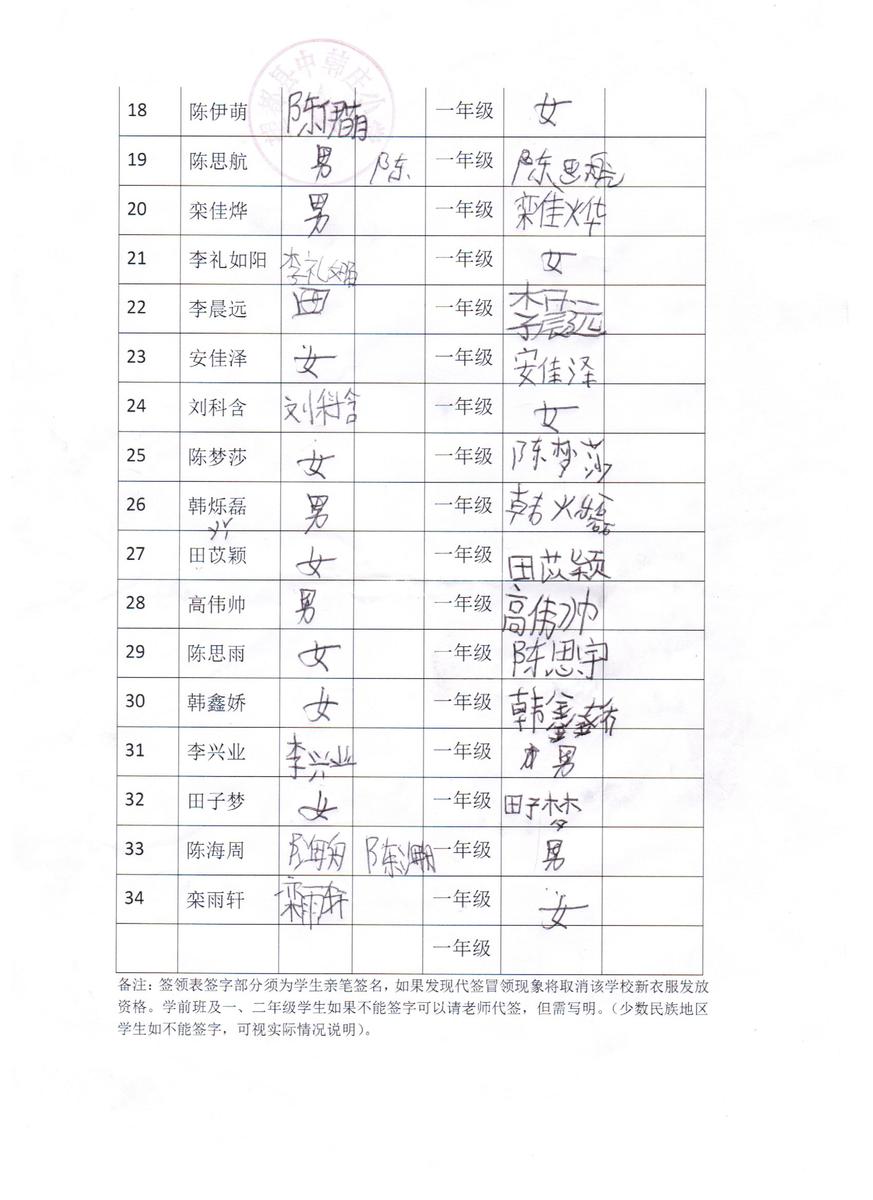 县中韩庄小学
18 陈伊萌 陈伊萌 一年级 女
19 陈思航 男 陈 一年级 陈思航
20 栾佳烨 男 一年级 栾佳烨
21 李礼如阳 李礼如阳 一年级 女
22 李晨远 一年级 李晨远
23 安佳泽 女 一年级 安佳泽
24 刘科含 刘科含 一年级 女
25 陈梦莎 女 一年级 陈梦莎
26 韩烁磊 男 一年级 韩烁磊
27 田苡颖 女 一年级 田苡颖
28 高伟帅 男 一年级 高伟帅
29 陈思雨 女 一年级 陈思宇
30 韩鑫娇 女 一年级 韩鑫
31 李兴业 李兴业 一年级 男
32 田子梦 女 一年级 田子梦
33 陈海周 陈海 一年级 男
34 栾雨轩 栾雨轩 一年级 女
一年级
备注：签领表签字部分须为学生亲笔签名，如果发现代签冒领现象将取消该学校新衣服发放
资格。学前班及一、二年级学生如果不能签字可以请老师代签，但需写明。（少数民族地区
学生如不能签字，可视实际情况说明）。